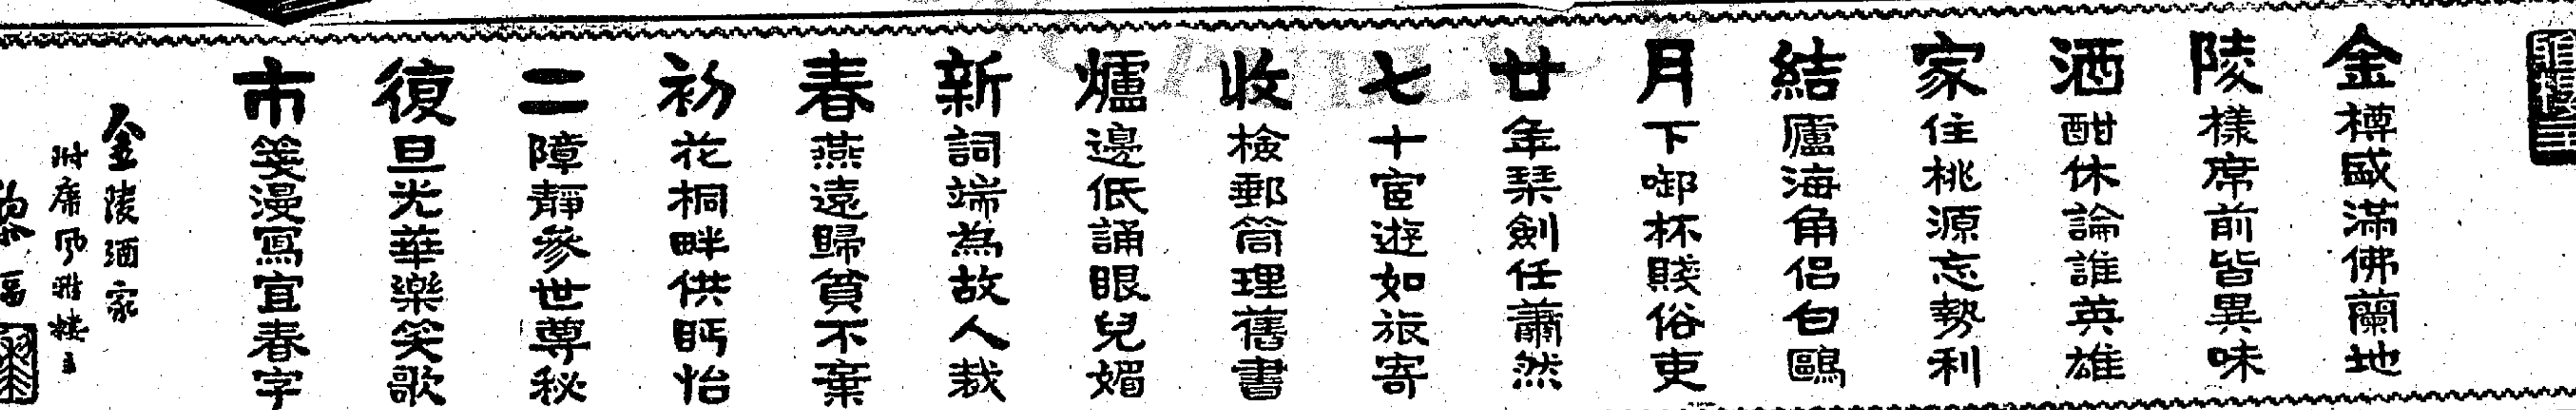 金樽盛滿佛蘭地
陵樣席前皆異味
酒酣休論誰英雄
家住桃源忘勢利
結廬海角侶白鷗
月下啣杯賤俗吏
廿年琹劍任蕭然
七十宦遊如旅寄
收檢郵筒理舊書
爐邊低誦眼兒媚
新詞端為故人裁
春燕遠歸貧不棄
初花桐畔供眄怡
二障靜參世尊秘
復旦光華樂笑歌
市箋漫寫宜春字
金陵酒家
附席風雅樓主